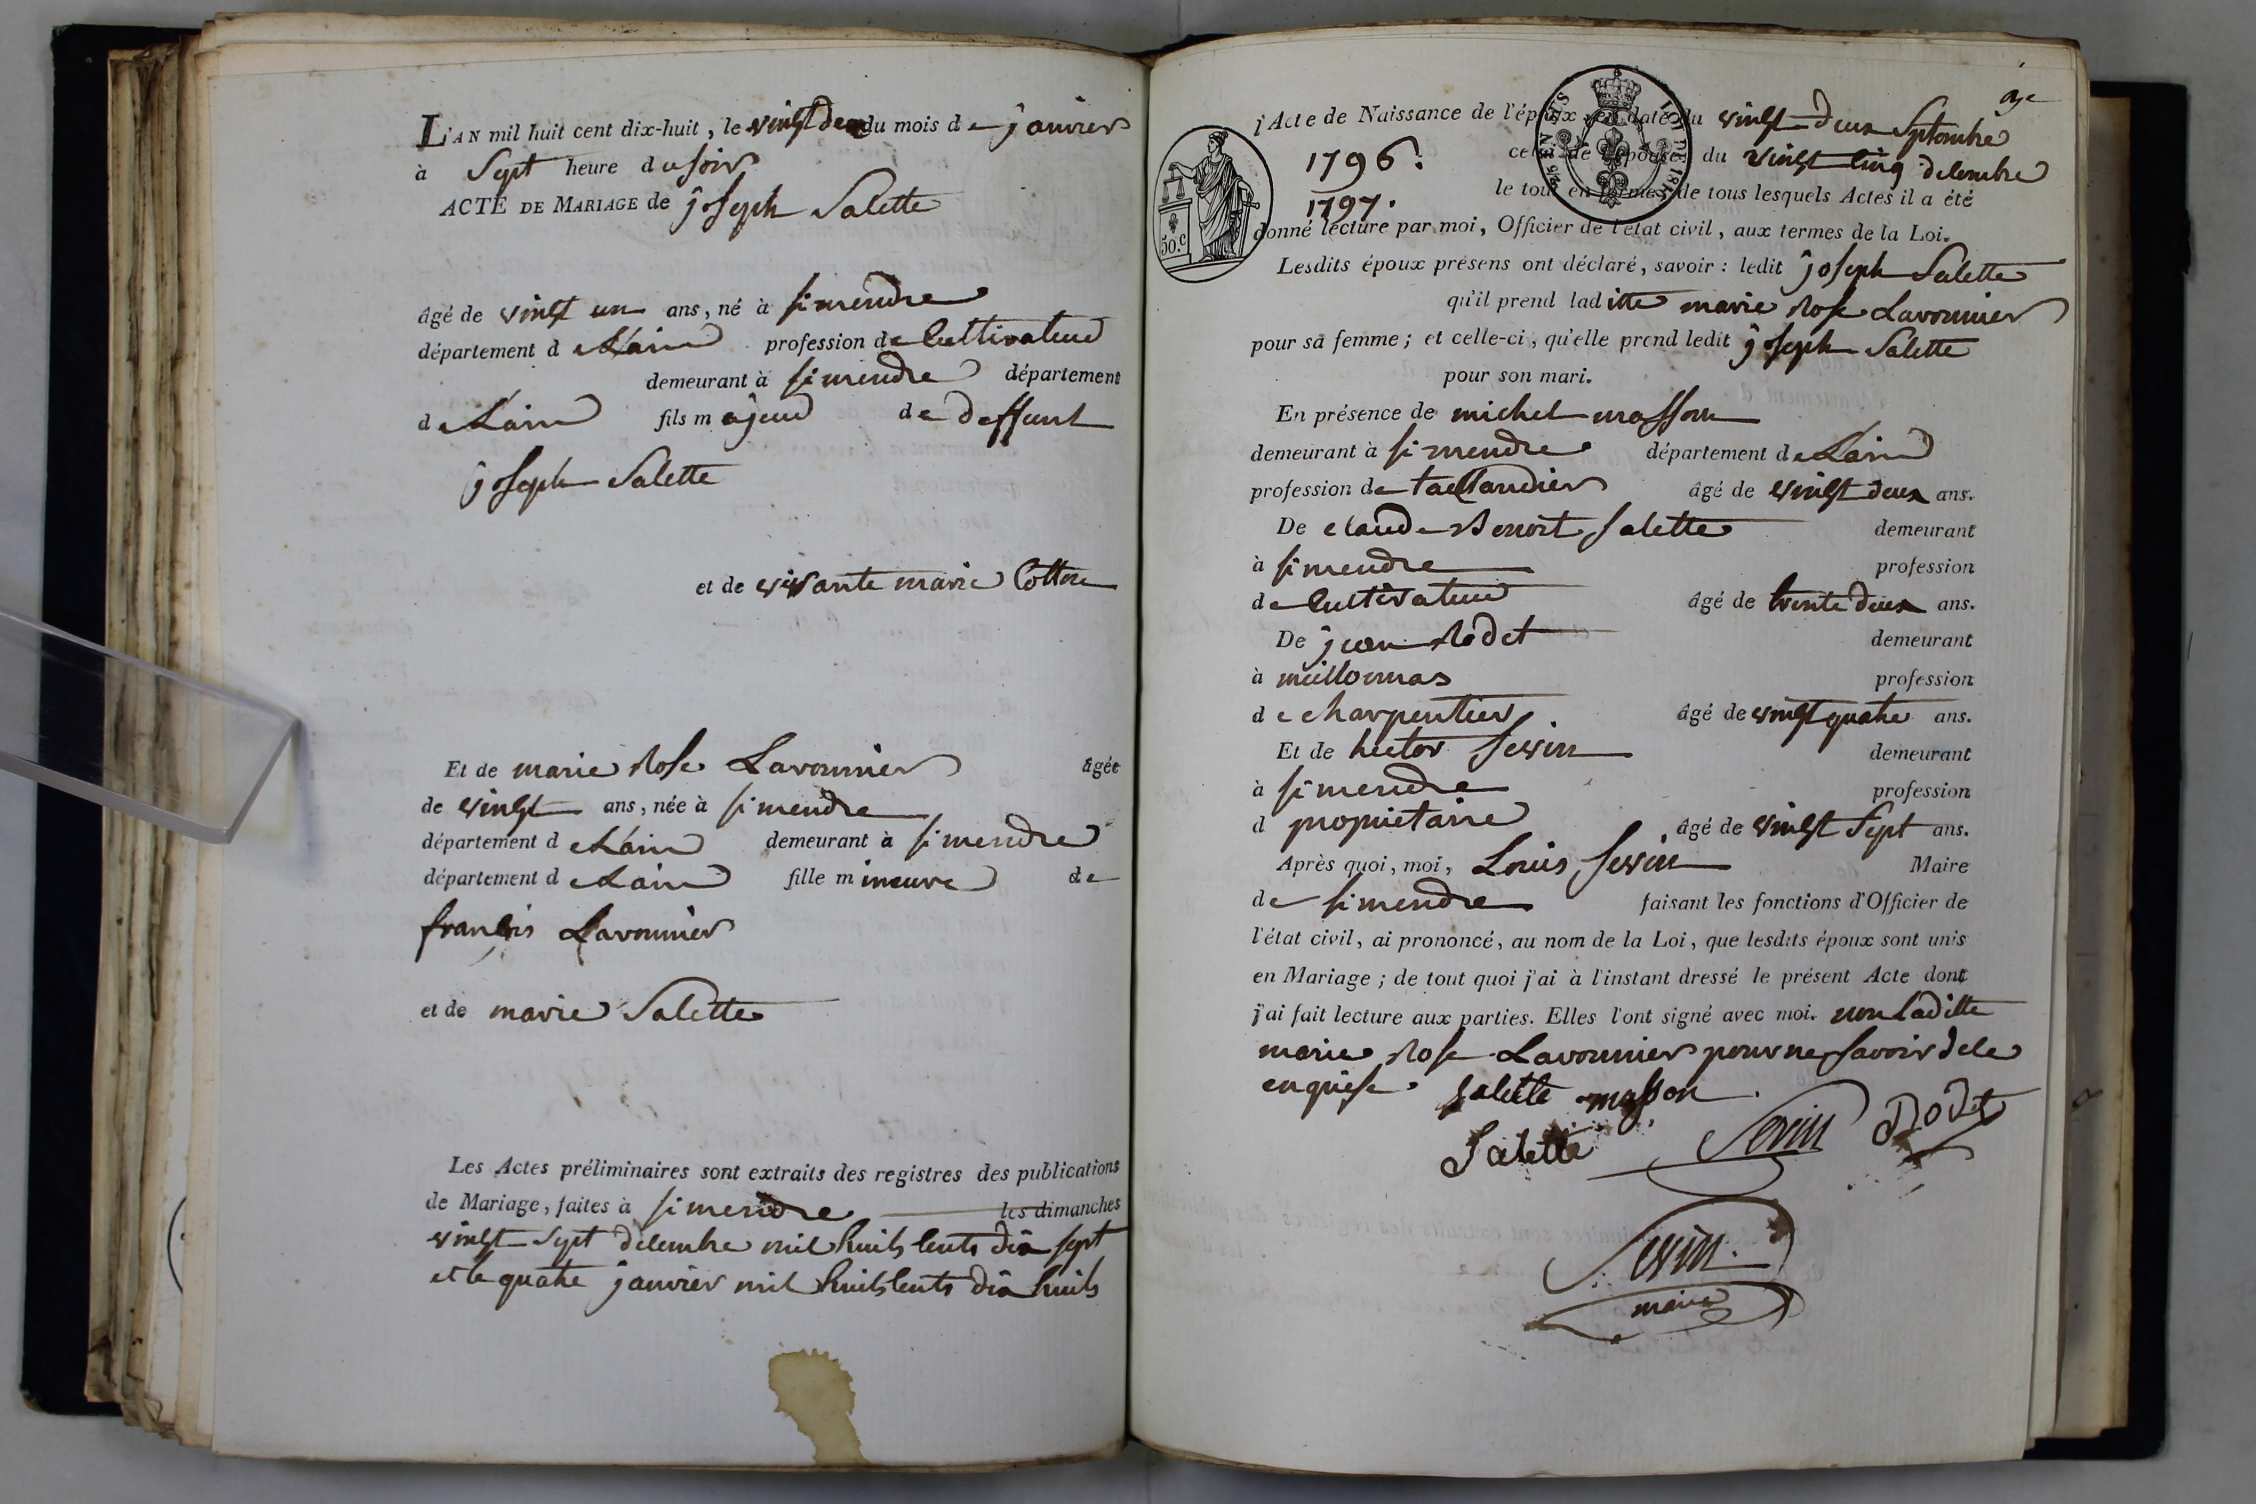 L'AN mil huit cent dix-huit, le vingt deux du mois de janvier
à Sept heure du soir
ACTE DE MARIAGE de joseph Salette
âgé de vingt un ans, né à simendre
département de Lain profession de Cultivateur
demeurant à simendre département
de Lain fils majeur de deffunt
joseph Salette
et de vivante marie Cotton
Et de marie Rose Lavonnier âgée
de vingt ans, née à simendre
département de Lain demeurant à simendre
département de Lain fille mineure de
francois Lavonnier
et de marie Salette
Les Actes préliminaires sont extraits des registres des publications
de Mariage, faites à simendre les dimanches
vingt sept decembre mil huit cents dix sept
et le quatre janvier mil huit cents dix huit
l'Acte de Naissance de l'époux en date du vingt deux Septembre
1796. celui de l'épouse du vingt cinq decembre
1797. le tout en formes de tous lesquels Actes il a été
donné lecture par moi, Officier de l'état civil, aux termes de la Loi.
50.c
Lesdits époux présens ont déclaré, savoir : ledit joseph Salette
qu'il prend laditte marie Rose Lavonnier
pour sa femme ; et celle-ci, qu'elle prend ledit joseph Salette
pour son mari.
En présence de michel masson
demeurant à simendre département de Lain
profession de taillandier âgé de vingt deux ans.
De claude Benoit Salette demeurant
à simendre profession
de Cultivateur âgé de trente deux ans.
De jean Rodet demeurant
à meillonnas profession
de charpentier âgé de vingt quatre ans.
Et de hector Sevin demeurant
à simendre profession
d propriétaire âgé de vingt Sept ans.
Après quoi, moi, Louis Sevin Maire
de simendre faisant les fonctions d'Officier de
l'état civil, ai prononcé, au nom de la Loi, que lesdits époux sont unis
en Mariage ; de tout quoi j'ai à l'instant dressé le présent Acte dont
j'ai fait lecture aux parties. Elles l'ont signé avec moi. non laditte
marie Rose Lavonnier pour ne savoir de ce
enquise. Salette masson
Salette Sevin Rodet
Sevin
maire